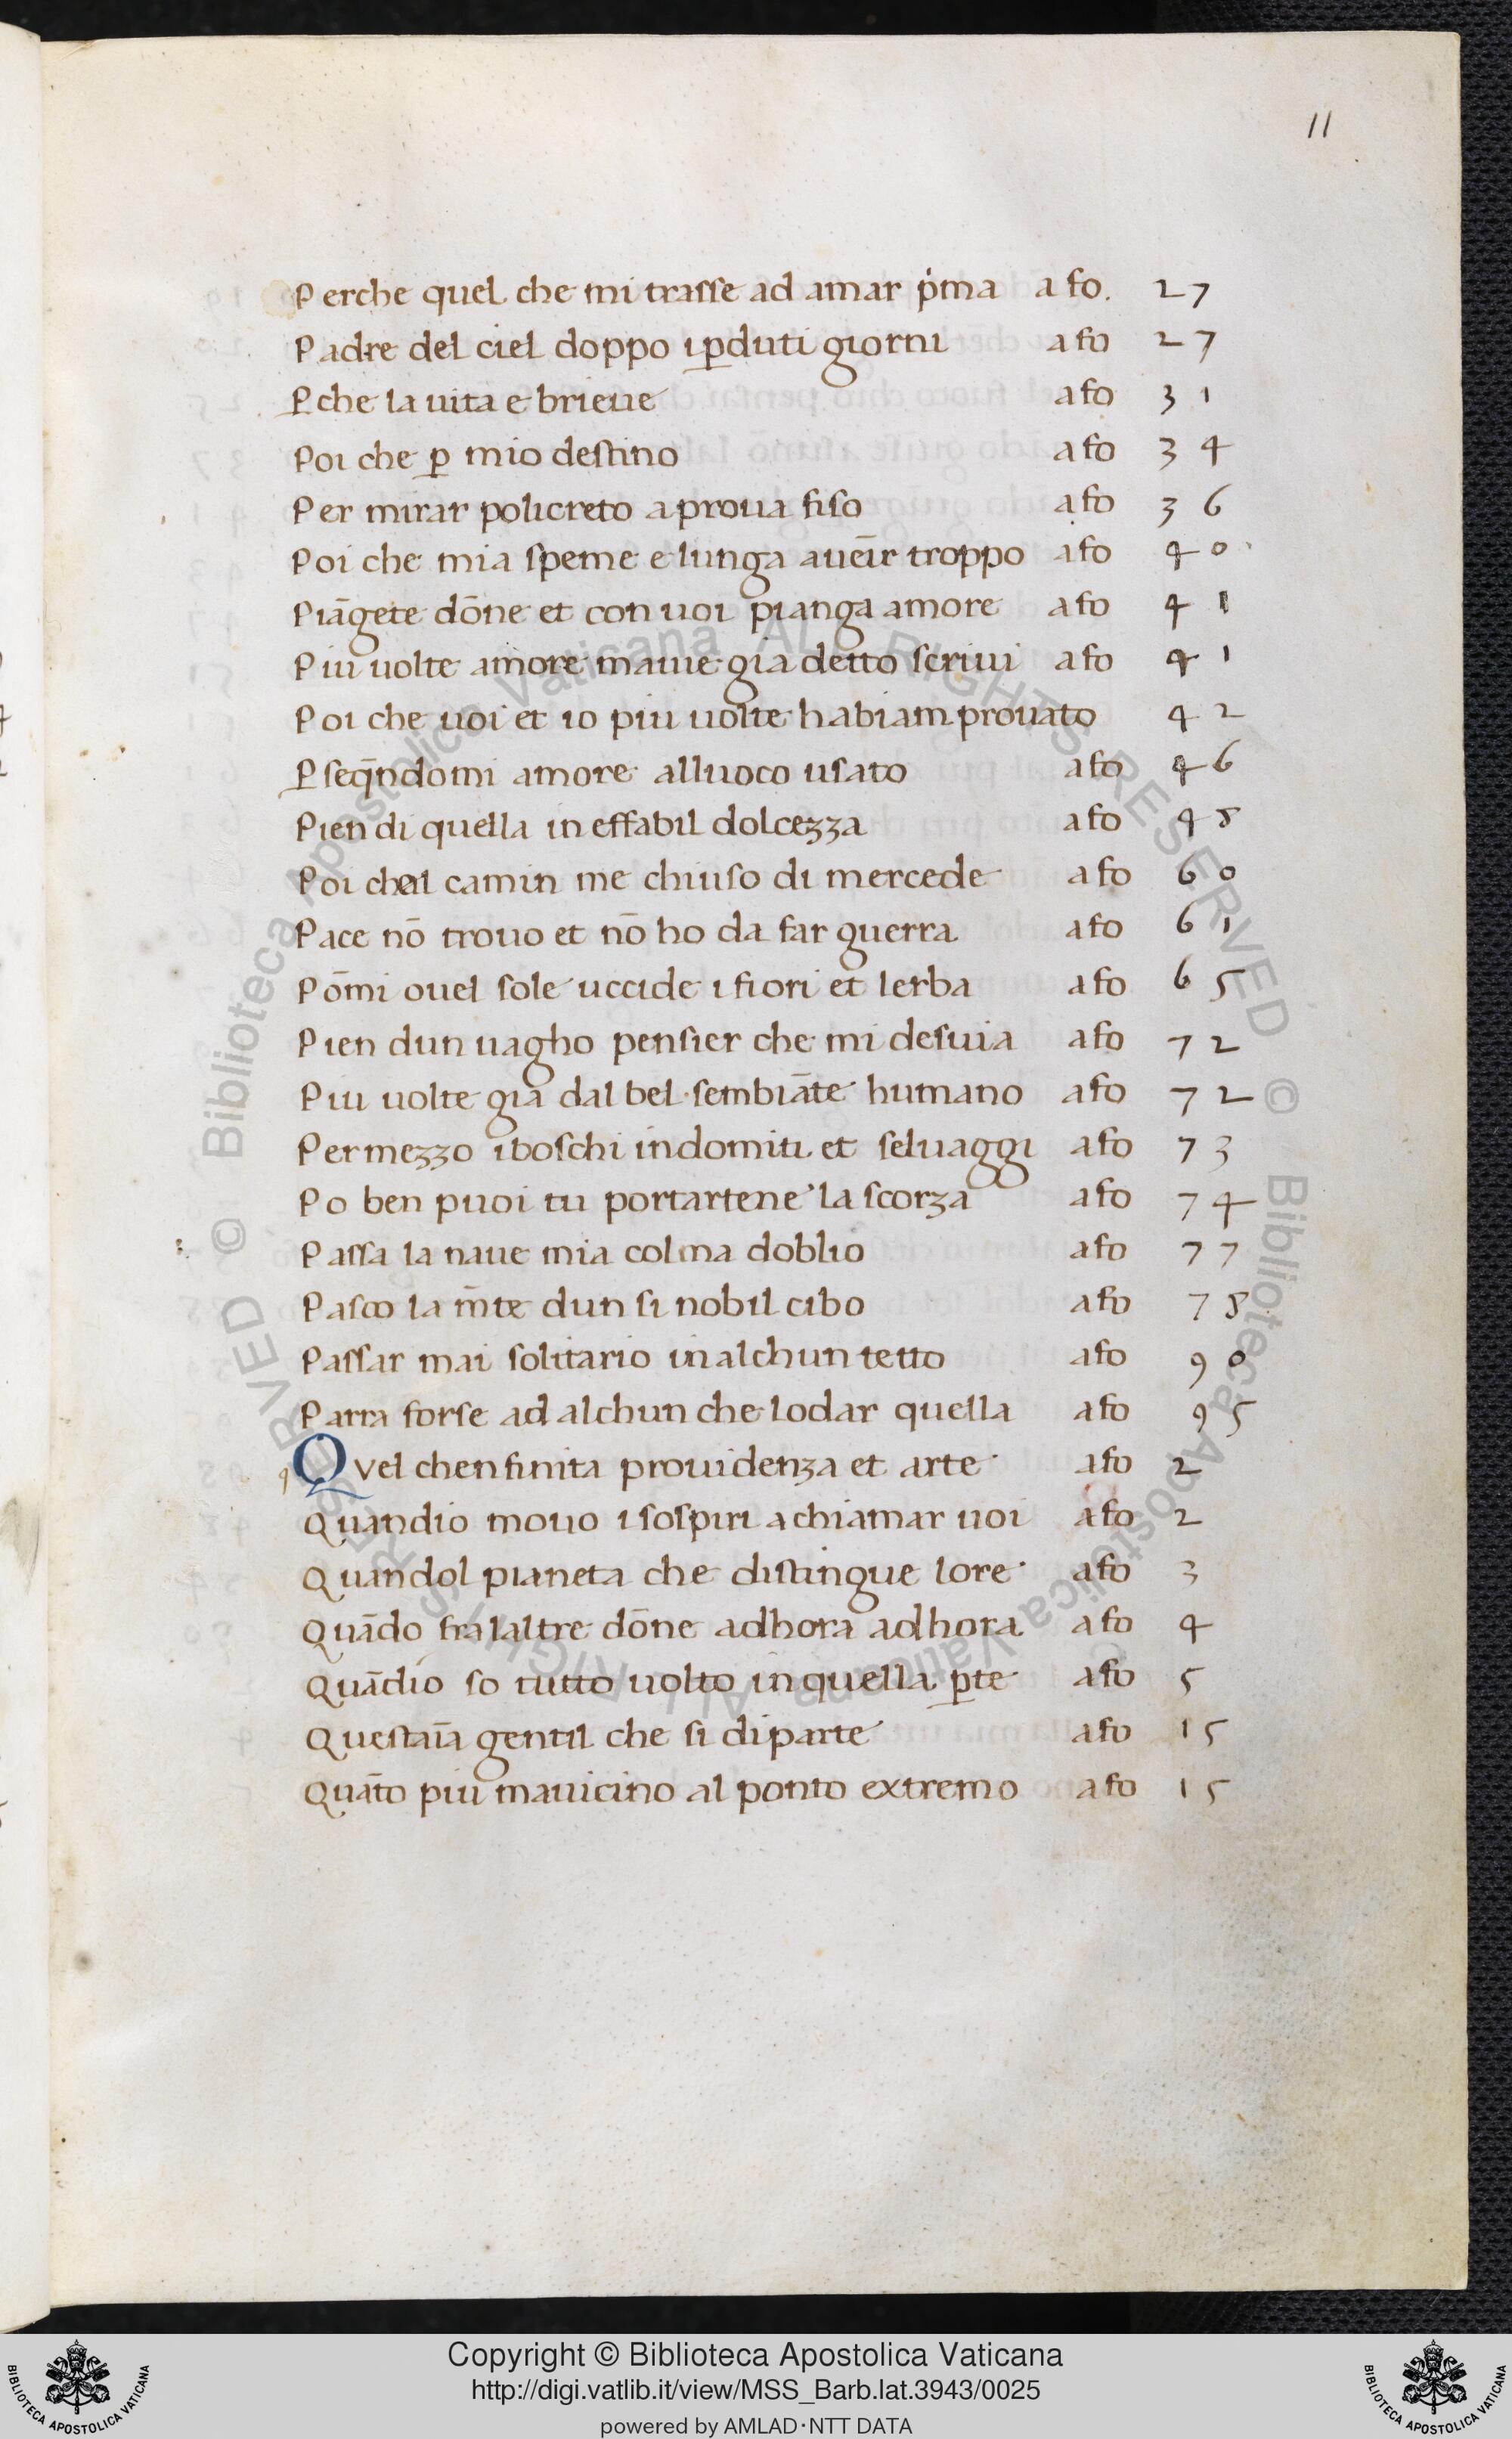 11
Perche quel che mi trasse ad amar p̍ma a fo. 27
Padre del ciel doppo i ꝑduti giorni a fo 27
Ꝑche la uita e brieue a fo 31
Poi che ꝑ mio destino a fo 34
Per mirar policreto a proua fiso a fo 36
Poi che mia speme e lunga aueīr troppo a fo 40
Piāgete dōne et con uoi pianga amore a fo 41
Piu uolte amore mauue gia detto scriui a fo 41
Poi che uoi et io piu uolte habiam prouato 42
Ꝑseq̄ndomi amore alluoco usato a fo 46
Pien di quella in effabil dolcezza a fo 48
Poi chel camin me chiuso di mercede a fo 60
Pace nō trouo et nō ho da far guerra a fo 61
Pōmi ouel sole uccide i fiori et lerba a fo 65
Pien dun uagho pensier che mi desuia a fo 72
Piu uolte gia dal bel sembiāte humano a fo 72
Per mezzo i boschi indomiti et seluaggi a fo 73
Po ben puoi tu portartene la scorza a fo 74
Passa la naue mia colma doblio a fo 77
Pasco la m̄te dun si nobil cibo a fo 78
Passar mai solitario in alchun tetto a fo 90
Parra forse ad alchun che lodar quella a fo 95
q Quel chenfinita prouidenza et arte a fo 2
Quandio mouo i sospiri a chiamar uoi a fo 2
Quandol pianeta che distingue lore a fo 3
Quādo fra laltre dōne adhora adhora a fo 4
Quādio so tutto uolto in quella ꝑte a fo 5
Questaīa gentil che si diparte a fo 15
Quāto piu mauicino al ponto extremo a fo 15
© Biblioteca Apostolica Vaticana ALL RIGHTS RESERVED © Biblioteca Apostolica Vaticana ALL RIGHTS RESERVED
Copyright © Biblioteca Apostolica Vaticana
http://digi.vatlib.it/view/MSS_Barb.lat.3943/0025
powered by AMLAD·NTT DATA
BIBLIOTECA APOSTOLICA VATICANA
BIBLIOTECA APOSTOLICA VATICANA